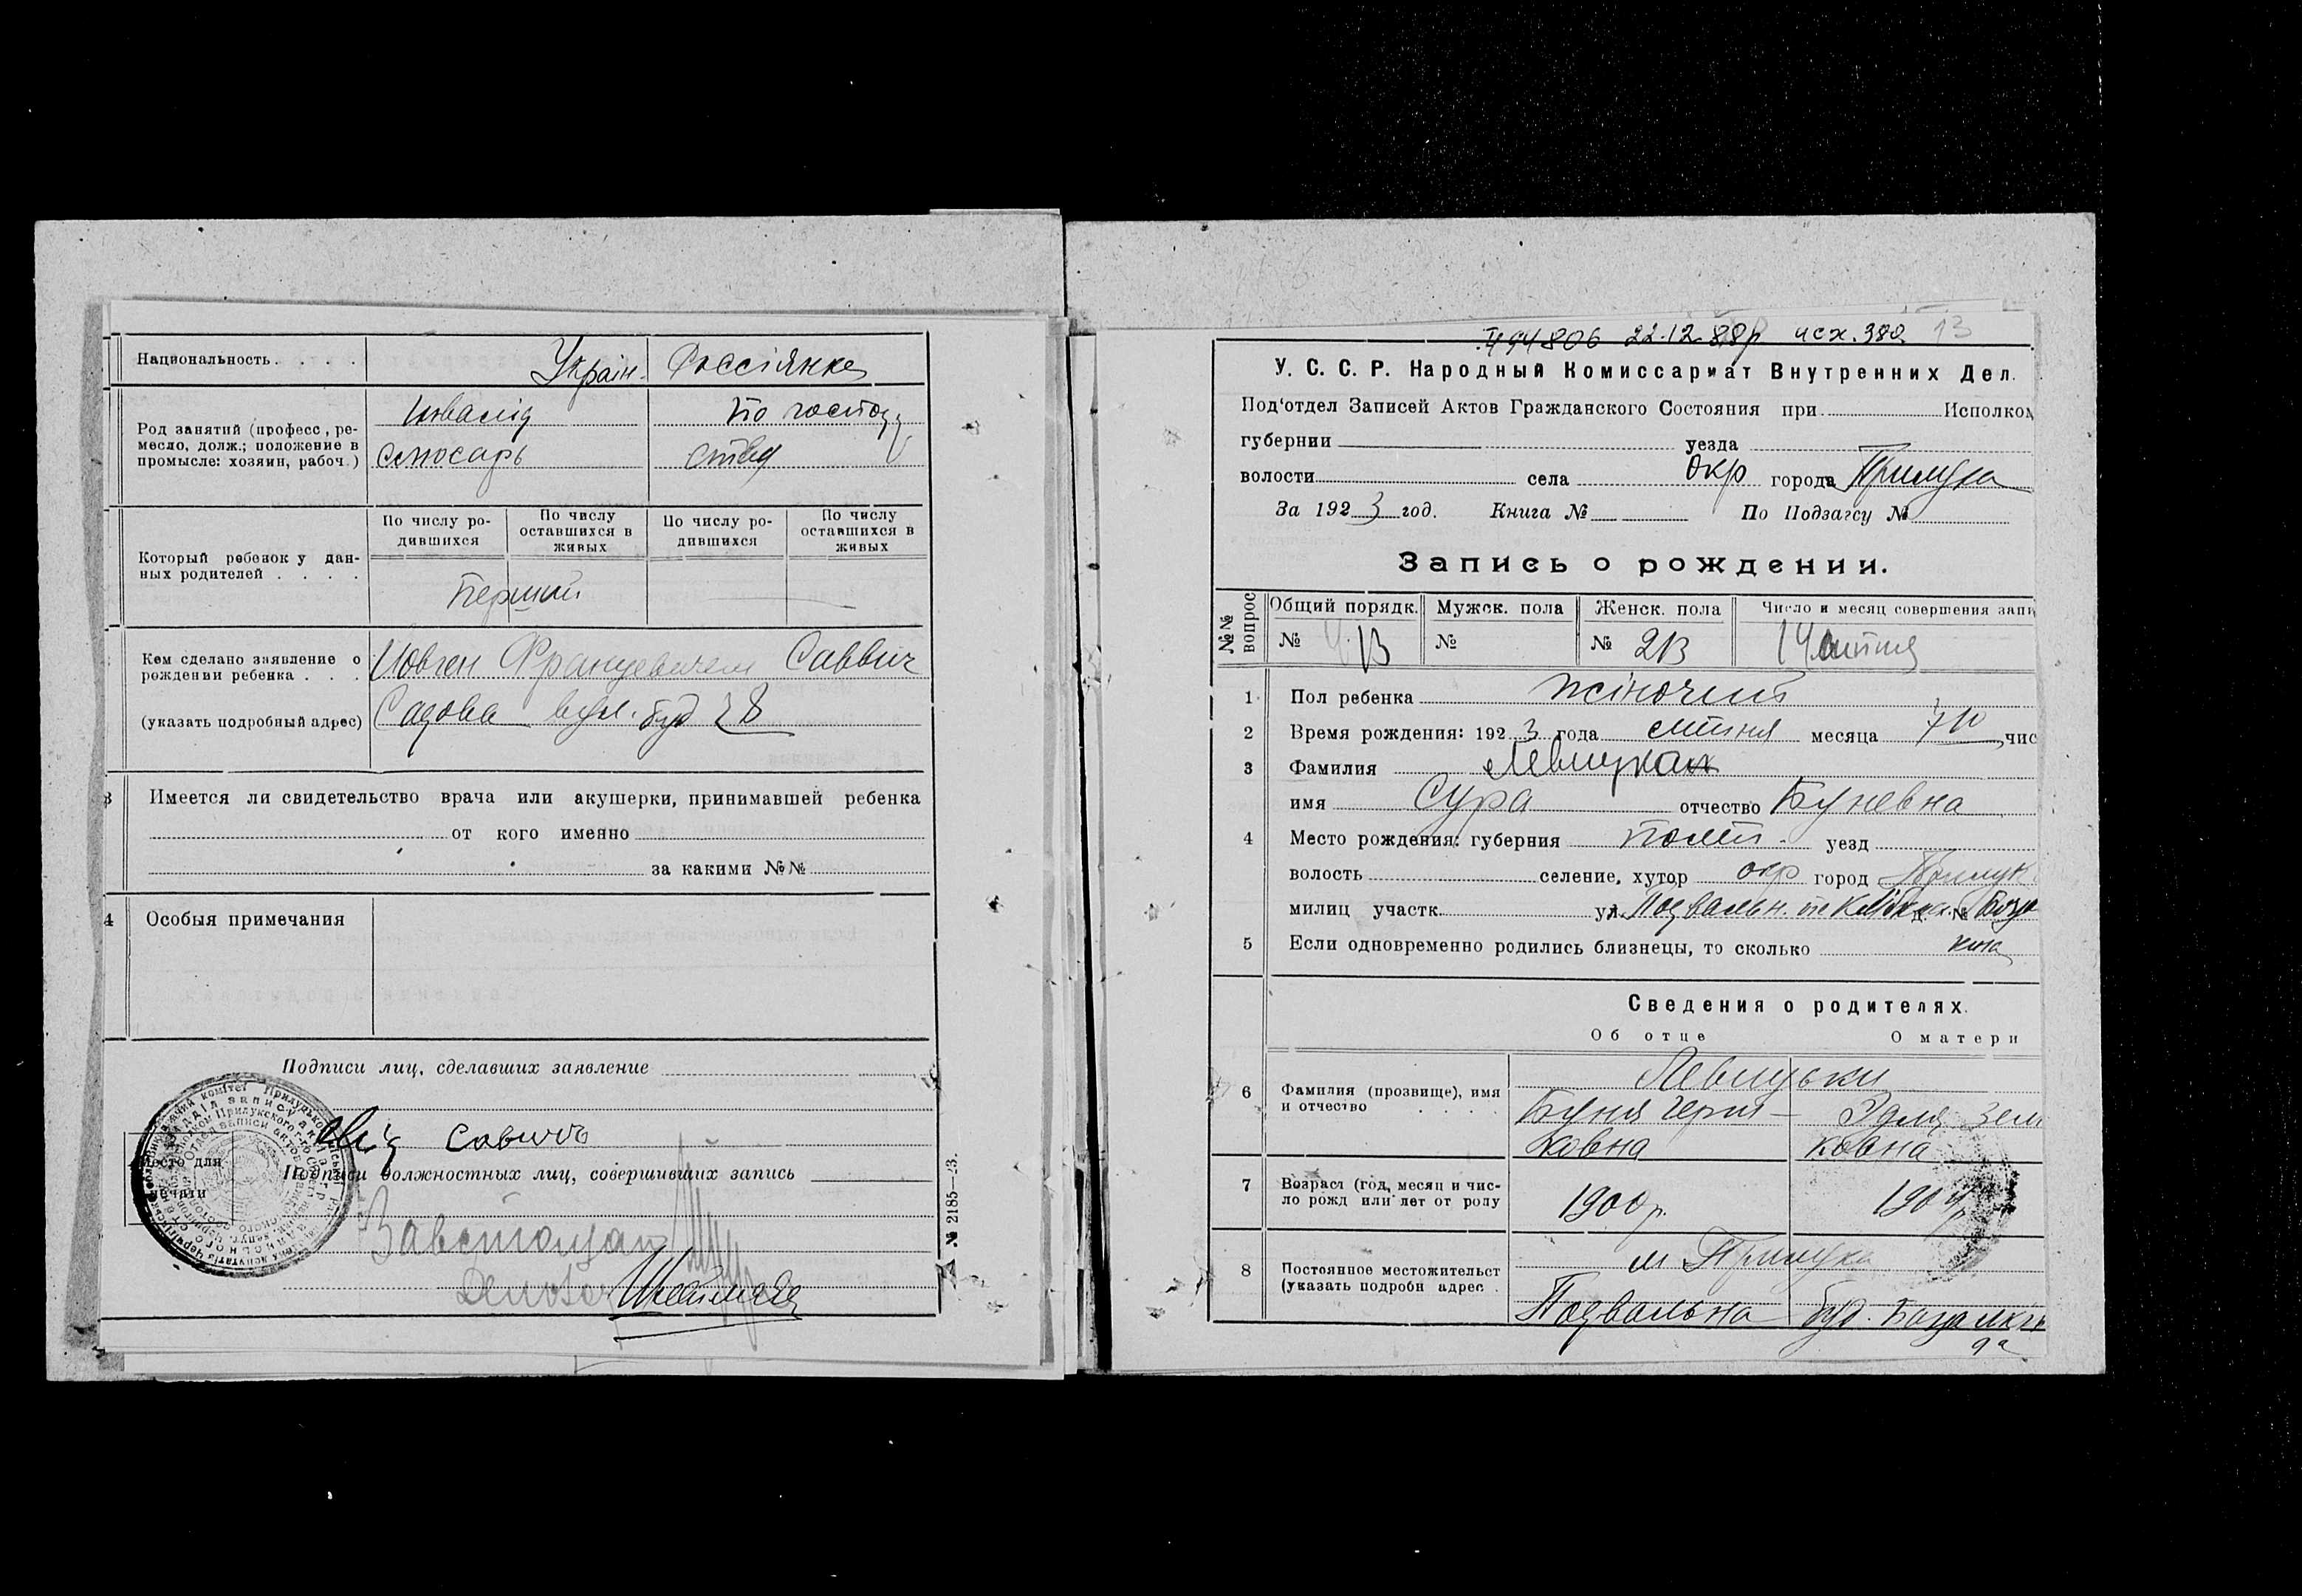 Национальность. . . .
Україн. Россіянка
Род занятий (професс, ре-
месло, долж.; положение в
промысле: хозяин, рабоч.)
Інвалід
Слюсарь
По числу ро-
дившихся
По числу
оставшихся в
живых
По числу ро-
дившихся
По числу
оставшихся в
живых
Который ребенок у дан-
ных родителей . . . .
Перший
Кем сделано заявление о
рождении ребенка . . .
(указать подробный адрес)
Францевичем Саввич
Садова вул. буд 28
3 Имеется ли свидетельство врача или акушерки, принимавшей ребенка
от кого именно
за какими №№
4 Особыя примечания
Подписи лиц, сделавших заявление
Место для
печати
Подписи должностных лиц, совершивших запись
№ 2185—23.
494806 22.12.88р исх. 382 13
У. С. С. Р. Народный Комиссариат Внутренних Дел.
Под'отдел Записей Актов Гражданского Состояния при Исполком
губернии уезда
волости села окр города Прилука
За 1923 год. Книга № По Подзагсу №
Запись о рождении.
№№ вопрос
Общий порядк. Мужск. пола Женск. пола Число и месяц совершения запи
№ 13 № № 2
1 Пол ребенка жіночий
2 Время рождения: 1923 года січня месяца чис
3 Фамилия Левицкая
имя Сура отчество Буневна
4 Место рождения: губерния Полт. уезд
волость селение, хутор окр город Прилук
милиц участк. ул. Подвальн. д. №
5 Если одновременно родились близнецы, то сколько
Сведения о родителях.
Об отце О матери
6 Фамилия (прозвище), имя
и отчество
Левицьки
Буня Герш-
ковна
Эдля Зелі
ковна
7 Возраст (год, месяц и чис-
ло рожд или лет от роду
1900р. 1904р
8 Постоянное местожительст
(указать подробн адрес .
м Прилука
Подвальна буд.